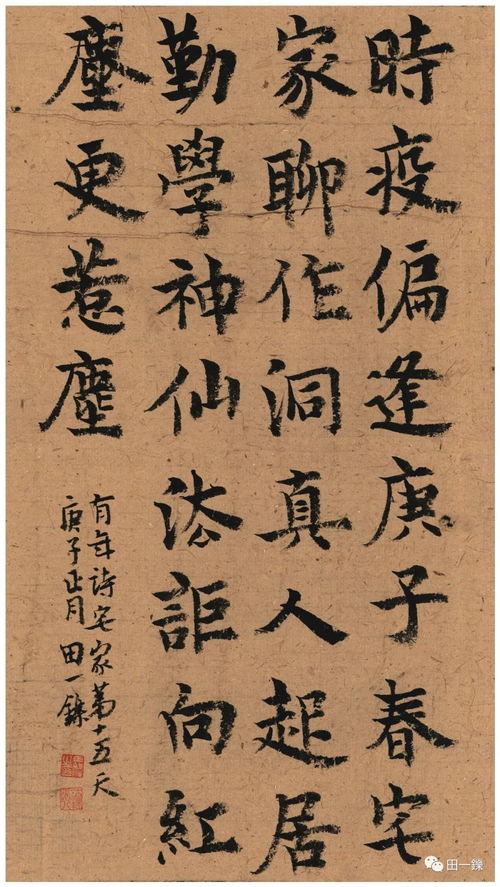 時疫偏逢庚子春宅
家聊作洞真人起居
勤學神仙法詎向紅
塵更惹塵
有年詩宅家第十五天
庚子正月田一鑠
田一鑠